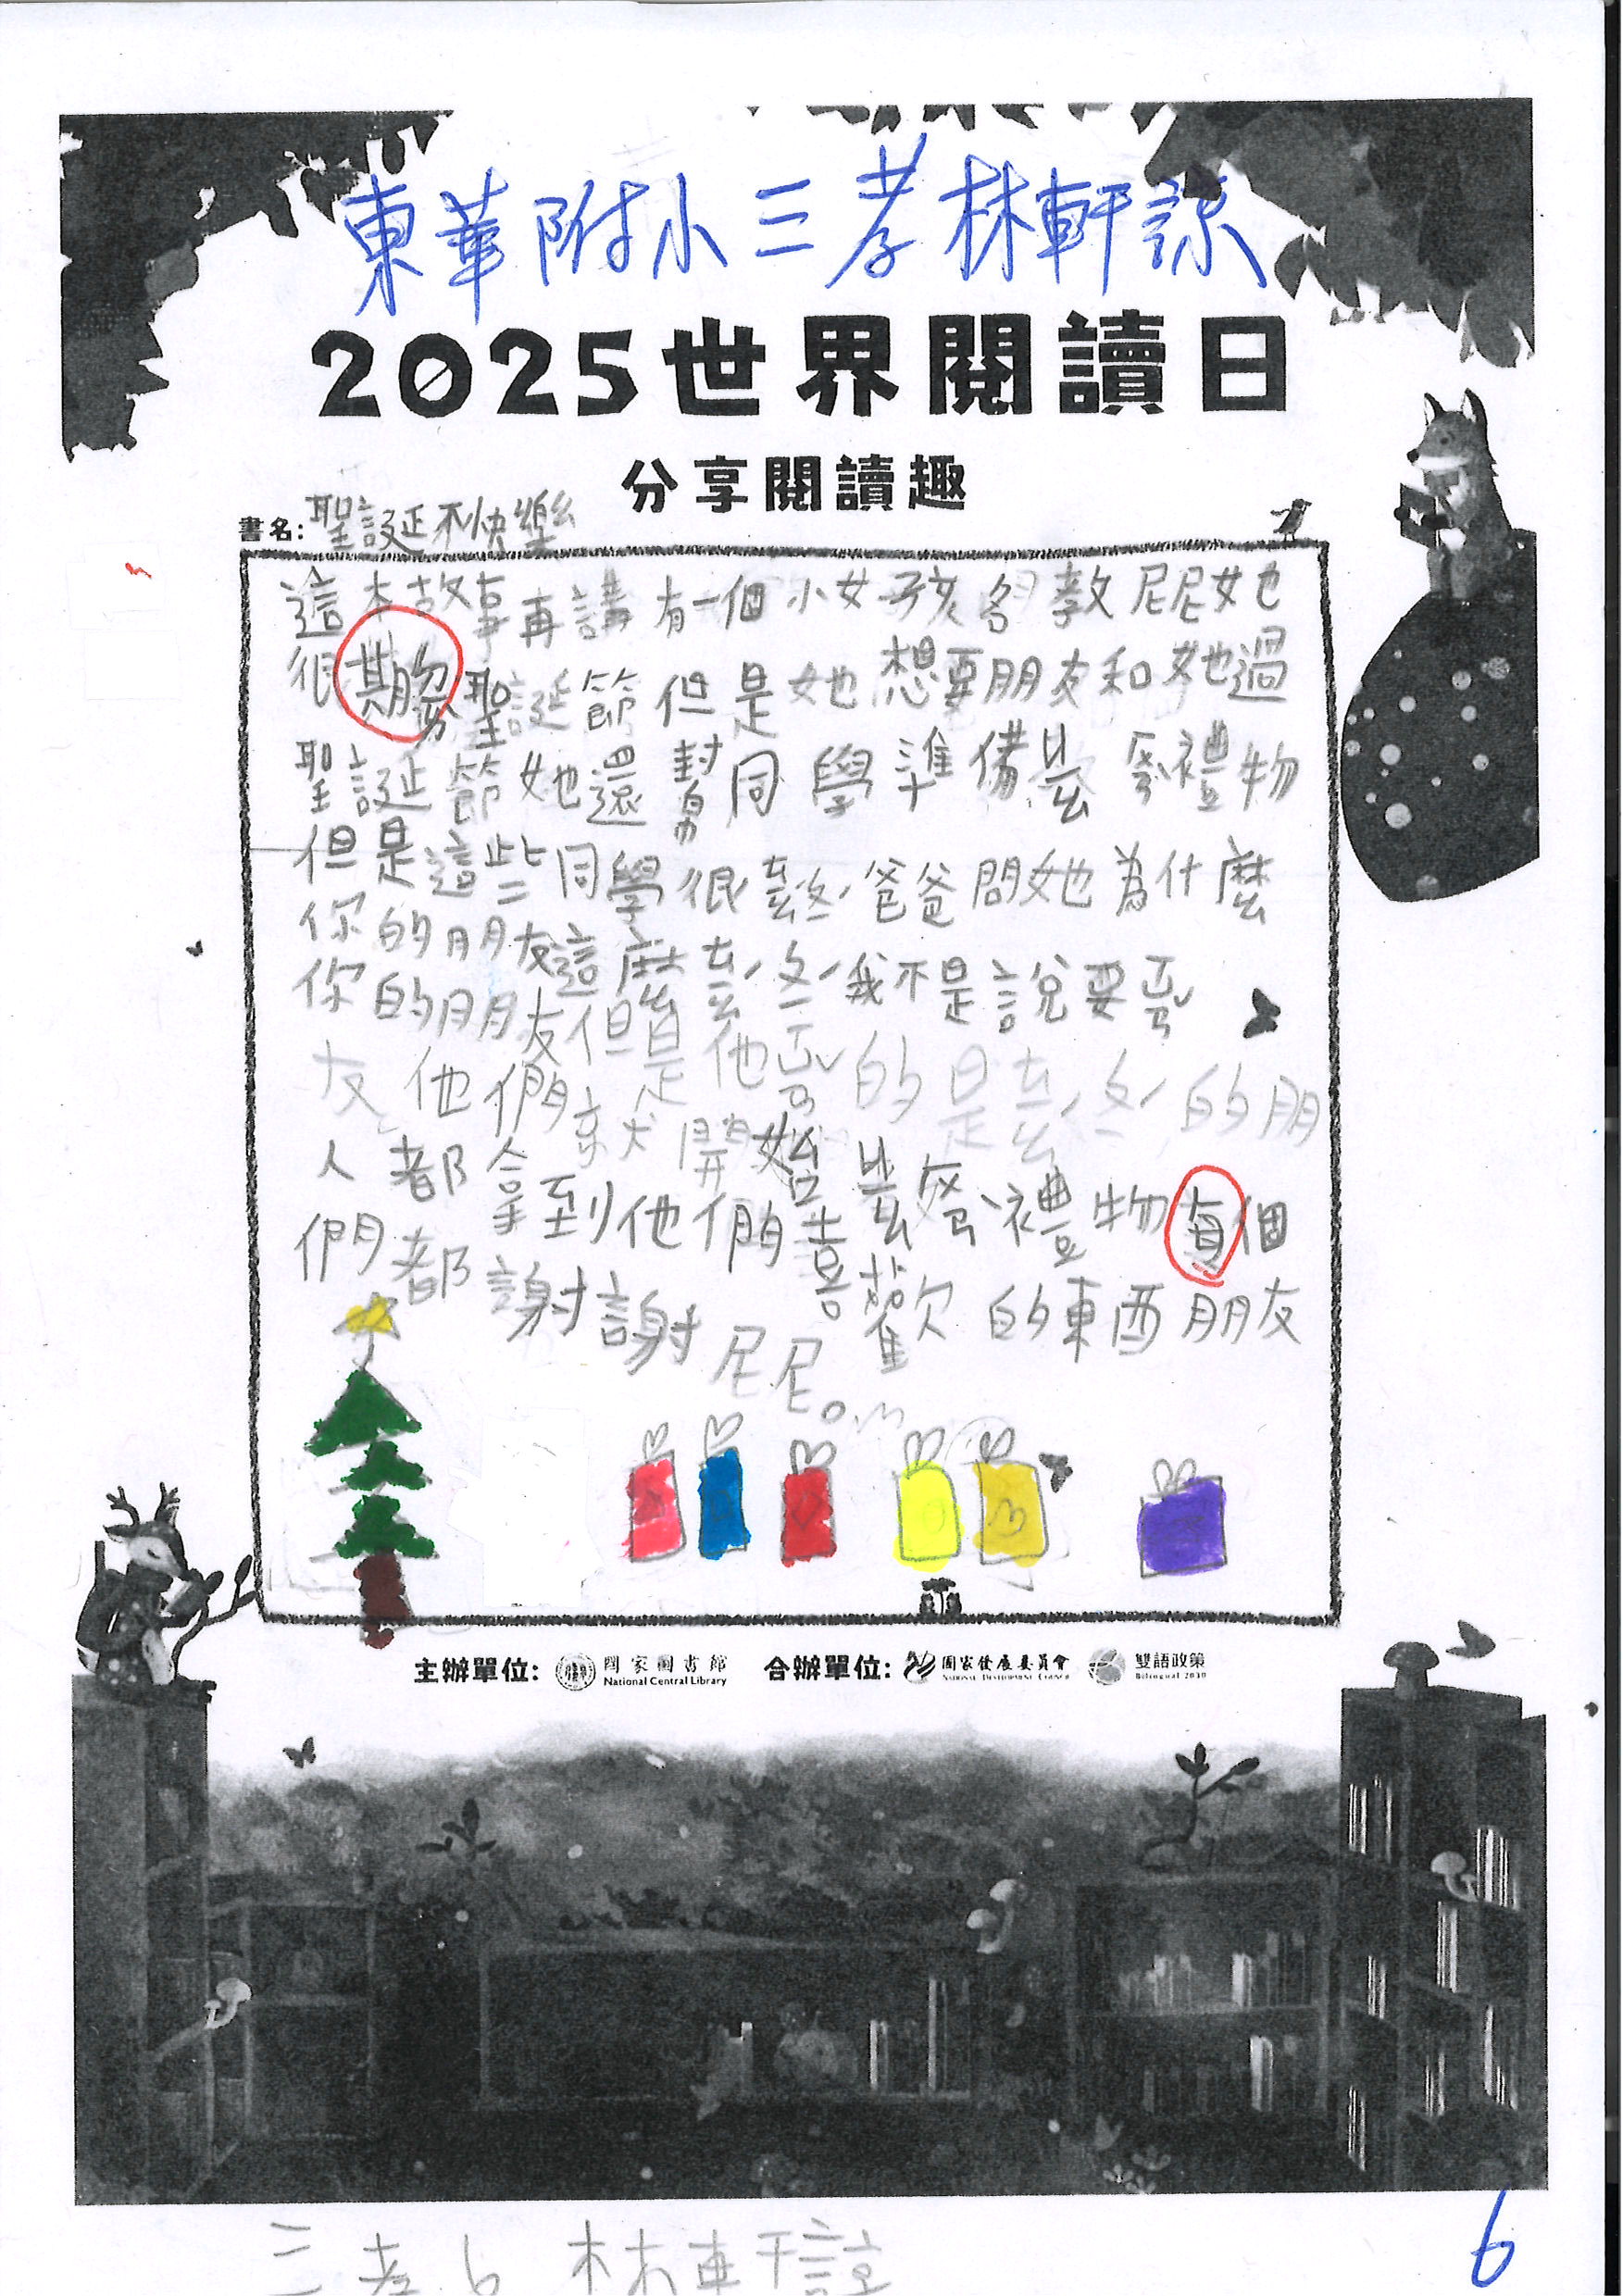 東華附小三孝林軒諒
2025世界閱讀日
分享閱讀趣
書名:聖誕不快樂
這本故事再講有一個小女孩名教尼尼她
很期盼聖誕節但是她想要朋友和她過
聖誕節她還幫同學準備ㄓㄠ ㄆㄢ禮物
但是這些同學很ㄊㄠ爸爸問她為什麼
你的朋友這麼ㄊㄠˊ我不是說要
你的朋友但是他的是ㄊㄠˊ的朋
友他們就開始禮物
人都拿到他們喜歡的東西朋友
們都謝謝尼尼。
主辦單位: 國家圖書館 National Central Library 合辦單位: 國家發展委員會 NATIONAL DEVELOPMENT COUNCIL 雙語政策 Bilingual 2030
三孝6 林軒諒
6